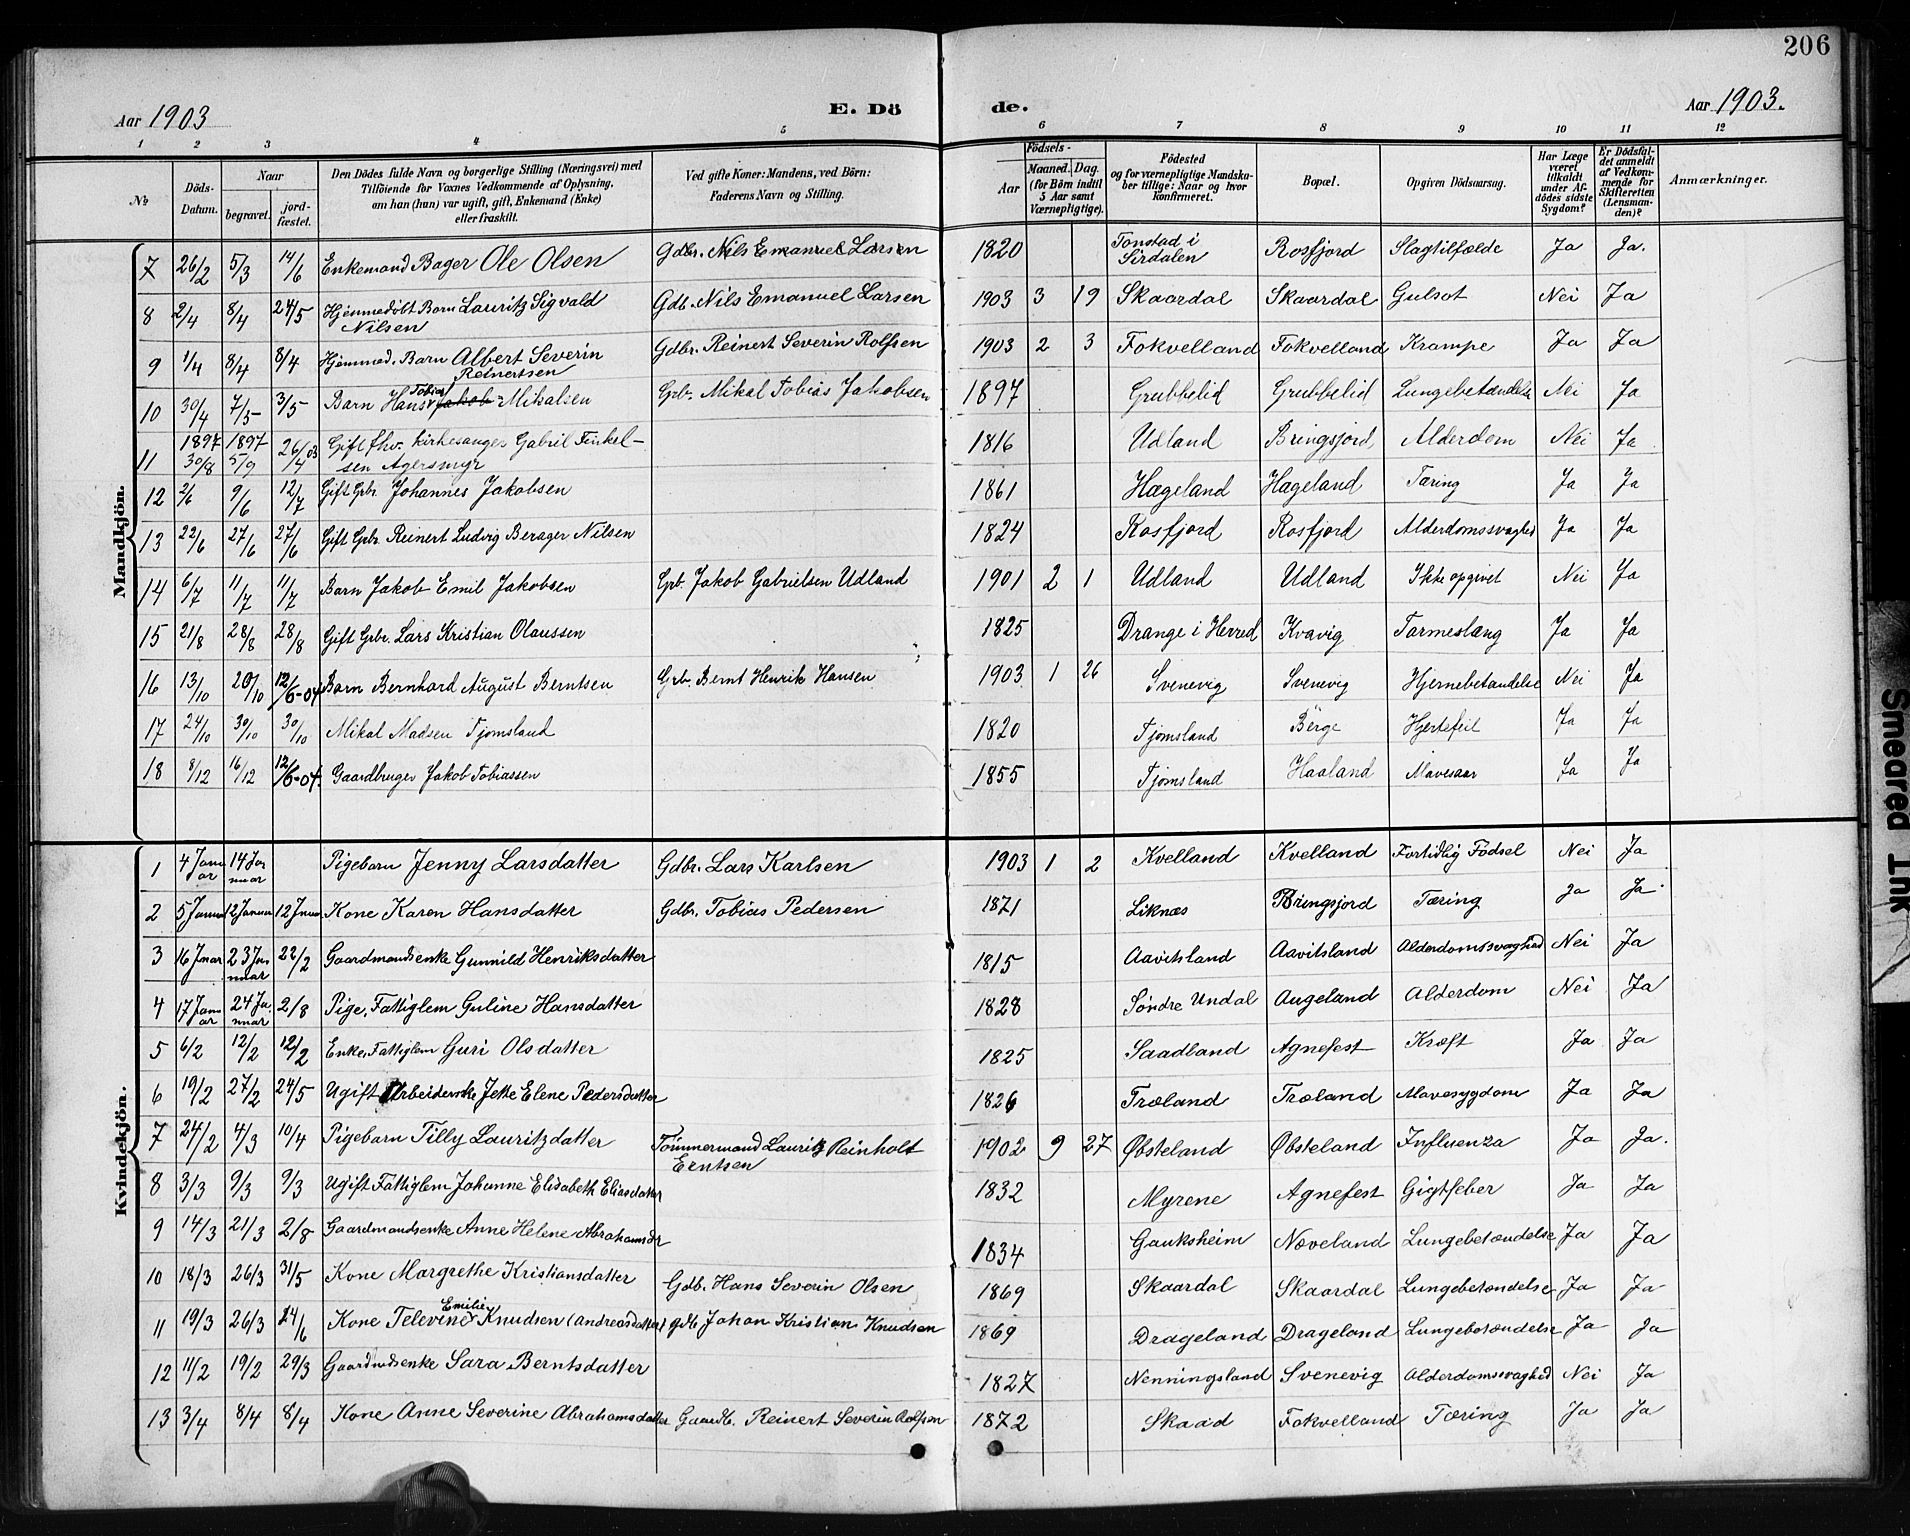 206
Aar 1903
E. Dö
de.
Aar 1903.
1 2 3 4 5 6 7 8 9 10 11 12
No
Döds-Datum.
Naar
begravet.
jord-fæstet.
Den Dödes fulde Navn og borgerlige Stilling (Næringsvei) med
Tilföiende for Voxnes Vedkommende af Oplysning,
om han (hun) var ugift, gift, Enkemand (Enke)
eller fraskilt.
Ved gifte Koner: Mandens, ved Börn:
Faderens Navn og Stilling.
Födsels-
Aar
Maaned. Dag.
(for Börn indtil
5 Aar samt
Værnepligtige).
Födested
og for værnepligtige Mandska-
ber tillige: Naar og hvor
konfirmeret.
Bopæl.
Opgiven Dödsaarsag.
Har Læge
været
tilkaldt
under Af-
dödes sidste
Sygdom?
Er Dödsfal-
det anmeldt
af Vedkom-
mende for
Skifteretten
(Lensman-
den)?
Anmærkninger.
Mandkjön.
7 26/2 5/3 14/6 Enkemand Bager Ole Olsen Gdbr. Nils Emanuel Larsen 1820 Tonstad i Sirdalen Rosfjord Slagtilfælde Ja Ja.
8 2/4 8/4 24/5 Hjemmedöbt Barn Lauritz Sigvald Nilsen Gdb. Nils Emanuel Larsen 1903 3 19 Skaardal Skaardal Gulsot Nei Ja
9 1/4 8/4 8/4 Hjemmed. Barn Albert Severin Reinertsen Gdbr. Reinert Severin Rolfsen 1903 2 3 Fokvelland Fokvelland Krampe Ja Ja
10 30/4 7/5 3/5 Barn Hans Tobias Jakob Mikalsen Grb. Mikal Tobias Jakobsen 1897 Grubbelid Grubbelid Lungebetændelse Nei Ja
11 1897 30/8 1897 5/9 26/4 03 Gift fhv. kirkesanger Gabril Terkel-
sen Agersmyr 1816 Udland Bringsjord, Alderdom Nei Ja
12 2/6 9/6 12/7 Gift Grb. Johannes Jakobsen 1861 Hageland Hageland Tæring Ja Ja
13 22/6 27/6 27/6 Gift Grb. Reinert Ludvig Berager Nilsen 1824 Rosfjord Rosfjord Alderdomssvaghed Ja Ja
14 6/7 11/7 11/7 Barn Jakob Emil Jakobsen Grb. Jakob Gabrielsen Udland 1901 2 1 Udland Udland Ikke opgivet Nei Ja
15 21/8 28/8 28/8 Gift Grb. Lars Kristian Olaussen 1825 Drange i Herred Kvavig Tarmeslæng Ja Ja
16 13/10 20/10 12/6-04 Barn Bernhard August Berntsen Grb. Bernt Henrik Hansen 1903 1 26 Svenevig Svenevig Hjernebetændelse Nei Ja
17 24/10 30/10 30/10 Mikal Madsen Tjomsland 1820 Tjomsland Berge Hjertefeil Ja Ja
18 8/12 16/12 12/6-04. Gaardbruger Jakob Tobiassen 1855 Tjomsland Haaland Mavesaar Ja Ja
Kvindekjön.
1 4 Januar 14 Januar Pigebarn Jenny Larsdatter Gdbr. Lars Karlsen 1903 1 2 Kvelland Kvelland Fortidlig Födsel Nei Ja
2 5 Januar 12 Januar 12 Januar Kone Karen Hansdatter Gdbr. Tobias Pedersen 1871 Liknæs Bringsjord Tæring Ja Ja
3 16 Jnar 23 Januar 22/2 Gaardmandsenke Gunnild Henriksdatter 1815 Aavitsland Aavitsland Alderdomssvaghed Nei Ja
4 17 Januar 24 Januar 2/8 Pige, Fattiglem Guline Hansdatter 1828 Søndre Undal Augeland Alderdom Nei Ja
5 6/2 12/2 12/2 Enke, Fattiglem Guri Olsdatter 1825 Saadland Agnefest Kræft Ja Ja
6 19/2 27/2 24/5 Ugift Arbeiderske Jette Elene Pedersdatter 1826 Træland Træland Mavesygdom Ja Ja
7 24/2 4/3 10/4 Pigebarn Tilly Lauritzdatter Tømmermand Lauritz Reinholt Erntsen 1902 9 27 Øbsteland Øbsteland Influenza Ja Ja.
8 3/3 9/3 9/3 Ugift Fattiglem Johanne Elisabeth Eliasdatter 1832 Myrene Agnefest Gigtfeber Ja Ja
9 14/3 21/3 2/8 Gaardmandsenke Anne Helene Abrahamsdr 1834 Gauksheim Næveland Lungebetændelse Ja Ja
10 18/3 26/3 31/5 Kone Margrethe Kristiansdatter Gdb. Hans Severin Olsen 1869 Skaardal Skaardal Lungebetændelse Ja Ja
11 19/3 26/3 14/6 Kone Televine Emilie Knudsen (Andreasdatter) Gdb Johan Kristian Knudsen 1869 Drageland Drageland Lungebetændelse Ja Ja
12 11/2 19/2 29/3 Gaardmdsenke Sara Berntsdatter 1827 Nenningsland Svenevig Alderdomssvaghed Nei Ja
13 3/4 8/4 8/4 Kone Anne Severine Abrahamsdatter Gaardb. Reinert Severin Rolfsen 1872 Skaad Fokvelland Tæring Ja Ja
Smeared Ink